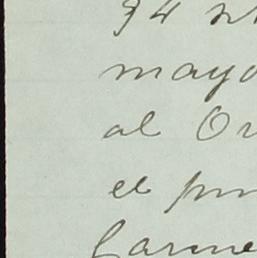 34
mayo
al Or
el pun
Carme